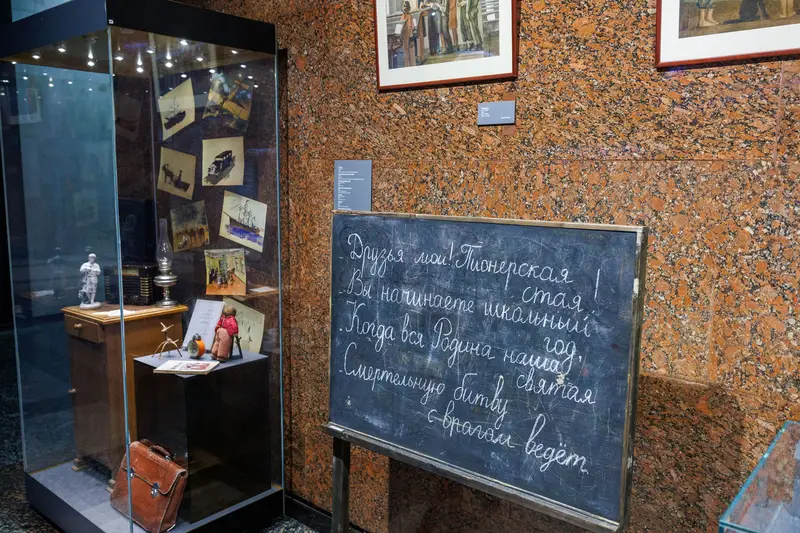 Друзья мои! Пионерская
стая!
Вы начинаете школьный
год,
Когда вся Родина наша
святая
Смертельную битву
с врагом ведёт